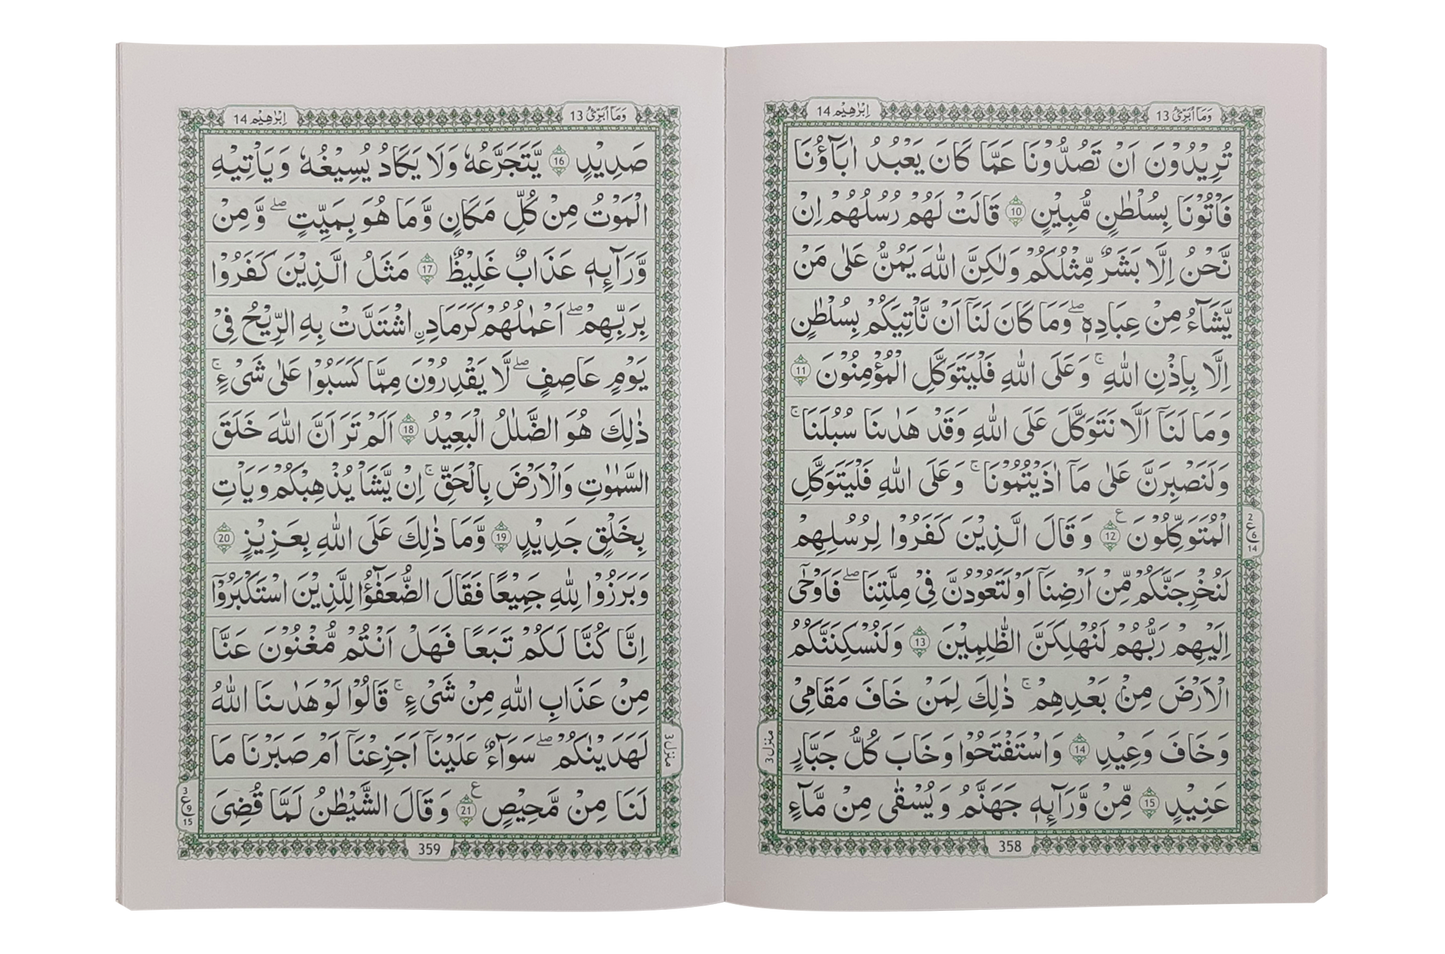 وَمَآ اُبَرِّئُ 13
اِبْرٰهِيْم 14
تُرِيْدُوْنَ اَنْ تَصُدُّوْنَا عَمَّا كَانَ يَعْبُدُ اٰبَآؤُنَا
فَاْتُوْنَا بِسُلْطٰنٍ مُّبِيْنٍ 10 قَالَتْ لَهُمْ رُسُلُهُمْ اِنْ
نَّحْنُ اِلَّا بَشَرٌ مِّثْلُكُمْ وَلٰكِنَّ اللّٰهَ يَمُنُّ عَلٰى مَنْ
يَّشَآءُ مِنْ عِبَادِهٖ ۖ وَمَا كَانَ لَنَآ اَنْ نَّاْتِيَكُمْ بِسُلْطٰنٍ
اِلَّا بِاِذْنِ اللّٰهِ ۚ وَعَلَى اللّٰهِ فَلْيَتَوَكَّلِ الْمُؤْمِنُوْنَ 11
وَمَا لَنَآ اَلَّا نَتَوَكَّلَ عَلَى اللّٰهِ وَقَدْ هَدٰىنَا سُبُلَنَا ۚ
وَلَنَصْبِرَنَّ عَلٰى مَآ اٰذَيْتُمُوْنَا ۚ وَعَلَى اللّٰهِ فَلْيَتَوَكَّلِ
الْمُتَوَكِّلُوْنَ 12 ع وَقَالَ الَّذِيْنَ كَفَرُوْا لِرُسُلِهِمْ
لَنُخْرِجَنَّكُمْ مِّنْ اَرْضِنَآ اَوْ لَتَعُوْدُنَّ فِيْ مِلَّتِنَا ۖ فَاَوْحٰٓى
اِلَيْهِمْ رَبُّهُمْ لَنُهْلِكَنَّ الظّٰلِمِيْنَ 13 وَلَنُسْكِنَنَّكُمُ
الْاَرْضَ مِنْۢ بَعْدِهِمْ ۚ ذٰلِكَ لِمَنْ خَافَ مَقَامِيْ
وَخَافَ وَعِيْدِ 14 وَاسْتَفْتَحُوْا وَخَابَ كُلُّ جَبَّارٍ
عَنِيْدٍ 15 مِّنْ وَّرَآئِهٖ جَهَنَّمُ وَيُسْقٰى مِنْ مَّآءٍ
2
ع
6
14
منزل 3
358
وَمَآ اُبَرِّئُ 13
اِبْرٰهِيْم 14
صَدِيْدٍ 16 يَّتَجَرَّعُهٗ وَلَا يَكَادُ يُسِيْغُهٗ وَيَاْتِيْهِ
الْمَوْتُ مِنْ كُلِّ مَكَانٍ وَّمَا هُوَ بِمَيِّتٍ ۖ وَمِنْ
وَّرَآئِهٖ عَذَابٌ غَلِيْظٌ 17 مَثَلُ الَّذِيْنَ كَفَرُوْا
بِرَبِّهِمْ ۖ اَعْمٰلُهُمْ كَرَمَادِ ۨ اشْتَدَّتْ بِهِ الرِّيْحُ فِيْ
يَوْمٍ عَاصِفٍ ۖ لَّا يَقْدِرُوْنَ مِمَّا كَسَبُوْا عَلٰى شَيْءٍ ۚ
ذٰلِكَ هُوَ الضَّلٰلُ الْبَعِيْدُ 18 اَلَمْ تَرَ اَنَّ اللّٰهَ خَلَقَ
السَّمٰوٰتِ وَالْاَرْضَ بِالْحَقِّ ۚ اِنْ يَّشَاْ يُذْهِبْكُمْ وَيَاْتِ
بِخَلْقٍ جَدِيْدٍ 19 وَّمَا ذٰلِكَ عَلَى اللّٰهِ بِعَزِيْزٍ 20
وَبَرَزُوْا لِلّٰهِ جَمِيْعًا فَقَالَ الضُّعَفٰٓؤُا لِلَّذِيْنَ اسْتَكْبَرُوْٓا
اِنَّا كُنَّا لَكُمْ تَبَعًا فَهَلْ اَنْتُمْ مُّغْنُوْنَ عَنَّا
مِنْ عَذَابِ اللّٰهِ مِنْ شَيْءٍ ۚ قَالُوْا لَوْ هَدٰىنَا اللّٰهُ
لَهَدَيْنٰكُمْ ۖ سَوَآءٌ عَلَيْنَآ اَجَزِعْنَآ اَمْ صَبَرْنَا مَا
لَنَا مِنْ مَّحِيْصٍ 21 ع وَقَالَ الشَّيْطٰنُ لَمَّا قُضِيَ
منزل 3
3
ع
9
15
359